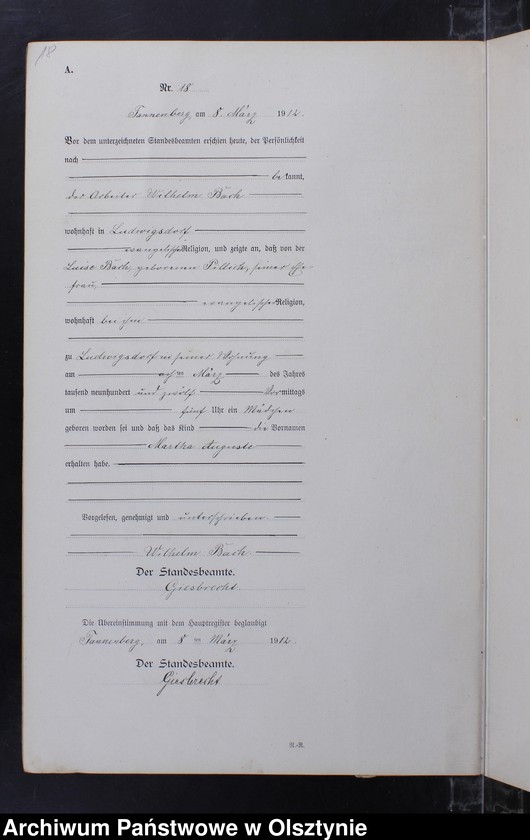 18
A.
Nr. 18
Tannenberg, am 8. März 1912.
Vor dem unterzeichneten Standesbeamten erschien heute, der Persönlichkeit
nach
bekannt,
der Arbeiter Wilhelm Bach
wohnhaft in Ludwigsdorf
evangelischer Religion, und zeigte an, daß von der
Luise Bach, geborenen, seiner Ehe-
frau,
evangelischer Religion,
wohnhaft bei ihm
zu Ludwigsdorf in seiner Wohnung
am ten März des Jahres
tausend neunhundert und zwölf Vormittags
um fünf Uhr ein Mädchen
geboren worden sei und daß das Kind die Vornamen
Martha Auguste
erhalten habe.
Vorgelesen, genehmigt und unterschrieben
Wilhelm Bach
Der Standesbeamte.
Giesbrecht.
Die Übereinstimmung mit dem Hauptregister beglaubigt
Tannenberg, am 8ten März 1912.
Der Standesbeamte.
Giesbrecht
Archiwum Państwowe w Olsztynie